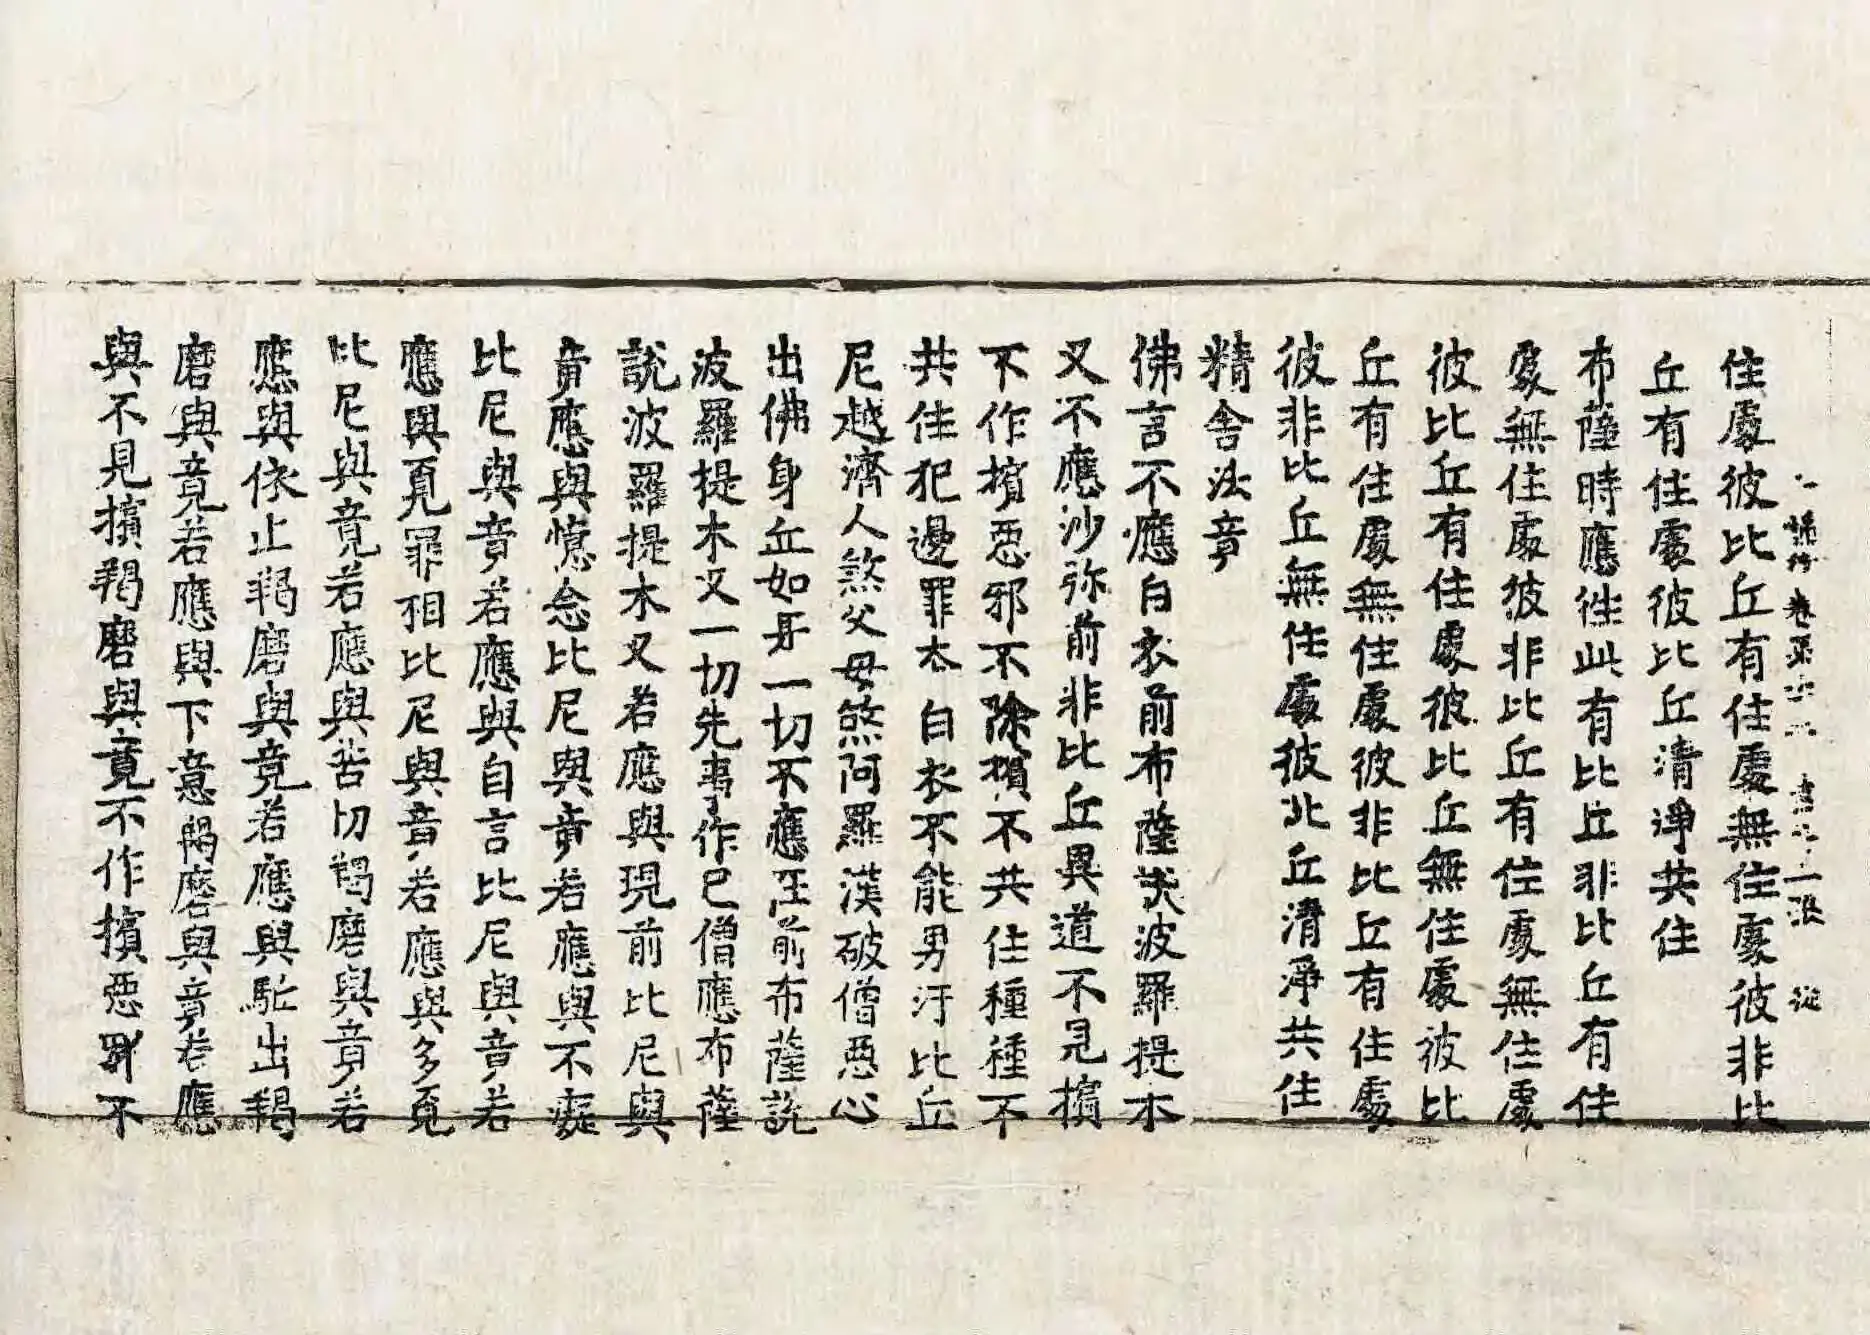 十誦律 卷第廿二 第 二張 從
住處彼比丘有住處無住處彼非比
丘有住處彼比丘清淨共住
布薩時應徃此有比丘非比丘有住
處無住處彼非比丘有住處無住處
彼比丘有住處彼比丘無住處彼比
丘有住處無住處彼非比丘有住處
彼非比丘無住處彼比丘清淨共住
精舍法竟
佛言不應白衣前布薩説波羅提木
叉不應沙弥前非比丘異道不見擯
不作擯惡邪不除擯不共住種種不
共住犯邊罪本白衣不能男汙比丘
尼越濟人煞父母煞阿羅漢破僧惡心
出佛身血如是一切不應在前布薩説
波羅提木叉一切先事作已僧應布薩
説波羅提木叉若應與現前比尼與
竟應與憶念比尼與竟若應與不癡
比尼與竟若應與自言比尼與竟若
應與覓罪相比尼與竟若應與多覓
比尼與竟若應與苦切羯磨與竟若
應與依止羯磨與竟若應與駈出羯
磨與竟若應與下意羯磨與竟若應
與不見擯羯磨與竟不作擯惡邪不